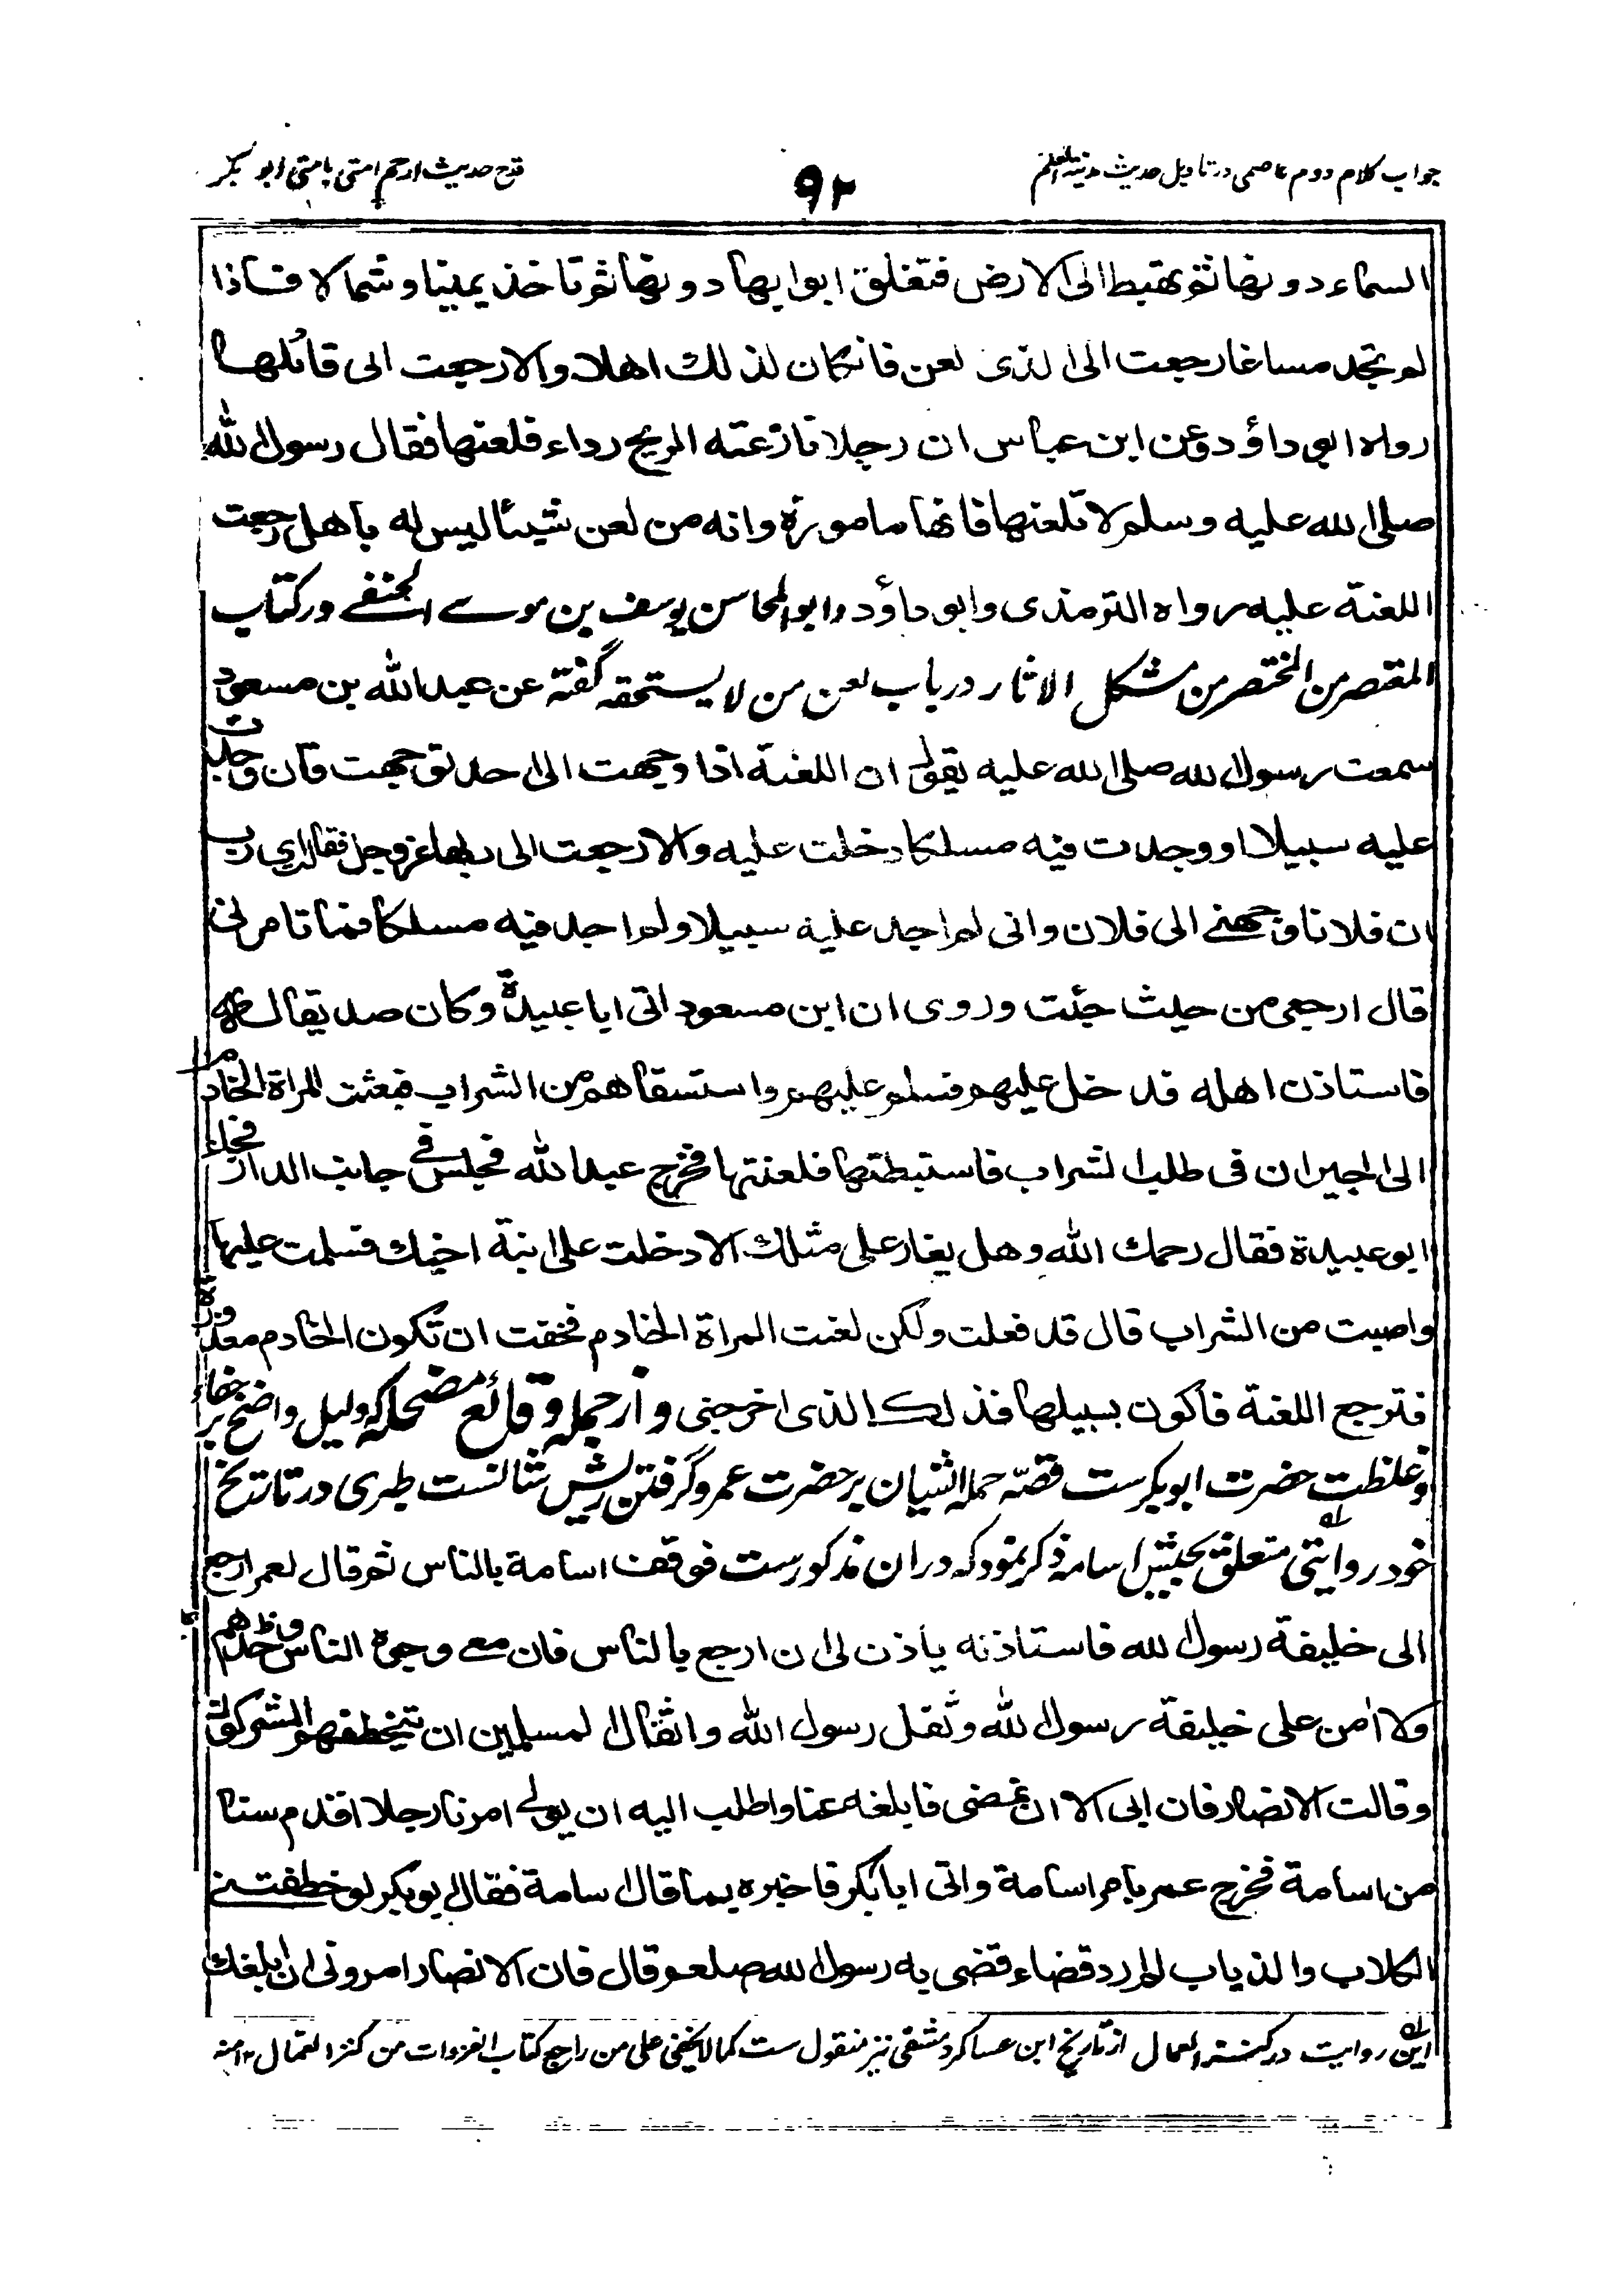 جواب کلام دوم عاصمی در تاویل حدیث مدینة العلم
۹۲
قدح حدیث ارحم امتی بامتی ابو بکر
السماء دونها ثم تهبط الی الارض فتغلق ابوابها دونها ثم تاخذ یمینا و شمالا فاذا
لم تجد مساغا رجعت الی الذی لعن فانکان لذلك اهلا والا رجعت الی قائلها
رواه ابو داؤد وعن ابن عباس ان رجلا نازعته الریح رداءه فلعنها فقال رسول الله
صلی الله علیه وسلم لا تلعنها فانها مامورة وانه من لعن شیئا لیس له باهل رجعت
اللعنة علیه رواه الترمذی وابو داؤد وابو المحاسن یوسف بن موسے الحنفے در کتاب
المعتصر من المختصر من مشکل الاثار در باب لعن من لا یستحقه گفته عن عبدالله بن مسعود
سمعت رسول الله صلی الله علیه یقول ان اللعنة اذا وجهت الی احد توجهت فان وجدت
علیه سبیلا او وجدت فیه مسلکا دخلت علیه والا رجعت الی ربها عز وجل فقالت ای رب
ان فلانا وجهنے الی فلان وانی لم اجد علیه سبیلا ولم اجد فیه مسلکا فما تامرنی
قال ارجعی من حیث جئت وروی ان ابن مسعود اتی ابا عبیدة وکان صدیقا له
فاستاذن اهله فدخل علیهم فسلم علیهم واستسقاهم من الشراب فبعثت المراة الخادم
الی الجیران فی طلب الشراب فاستبطتها فلعنتها فخرج عبدالله فجلس فی جانب الدار فجاء
ابو عبیدة فقال رحمك الله وهل یغار علی مثلك الا دخلت علی ابنة اخیك فسلمت علیها
واصبت من الشراب قال قد فعلت ولکن لعنت المراة الخادم فخفت ان تکون الخادم معذورة
فترجع اللعنة فاکون بسبیلها فذلك الذی اخرجنی و از جمله وقائع مضحکه که دلیل واضح بر جفاء
و غلظت حضرت ابوبکرست قصّه حمله ایشان بر حضرت عمر و گرفتن ریش شانست طبری در تاریخ
خود روایتی متعلق بجیش اسامه ذکر نموده که دران مذکورست فوقف اسامة بالناس ثم قال لعمر ارجع
الی خلیفة رسول الله فاستاذنه یأذن لی ان ارجع بالناس فان معے وجوه الناس وحدهم
ولا اٰمن علی خلیفة رسول الله وثقل رسول الله واثقال المسلمین ان یتخطفهم المشرکون
وقالت الانصار فان ابی الا ان نمضی فابلغه عنا واطلب الیه ان یولے امرنا رجلا اقدم سنا
من اسامة فخرج عمر بامر اسامة واتی ابا بکر فاخبره بما قال اسامة فقال ابو بکر لو خطفتنے
الکلاب والذیاب لم ارد قضاء قضی به رسول الله صلعم قال فان الانصار امرونی ان ابلغك
این روایت در کنز العمال از تاریخ ابن عساکر دمشقی نیز منقول ست کما لا یخفی علی من راجع کتاب الغزوات من کنز العمال ۱۲ منه